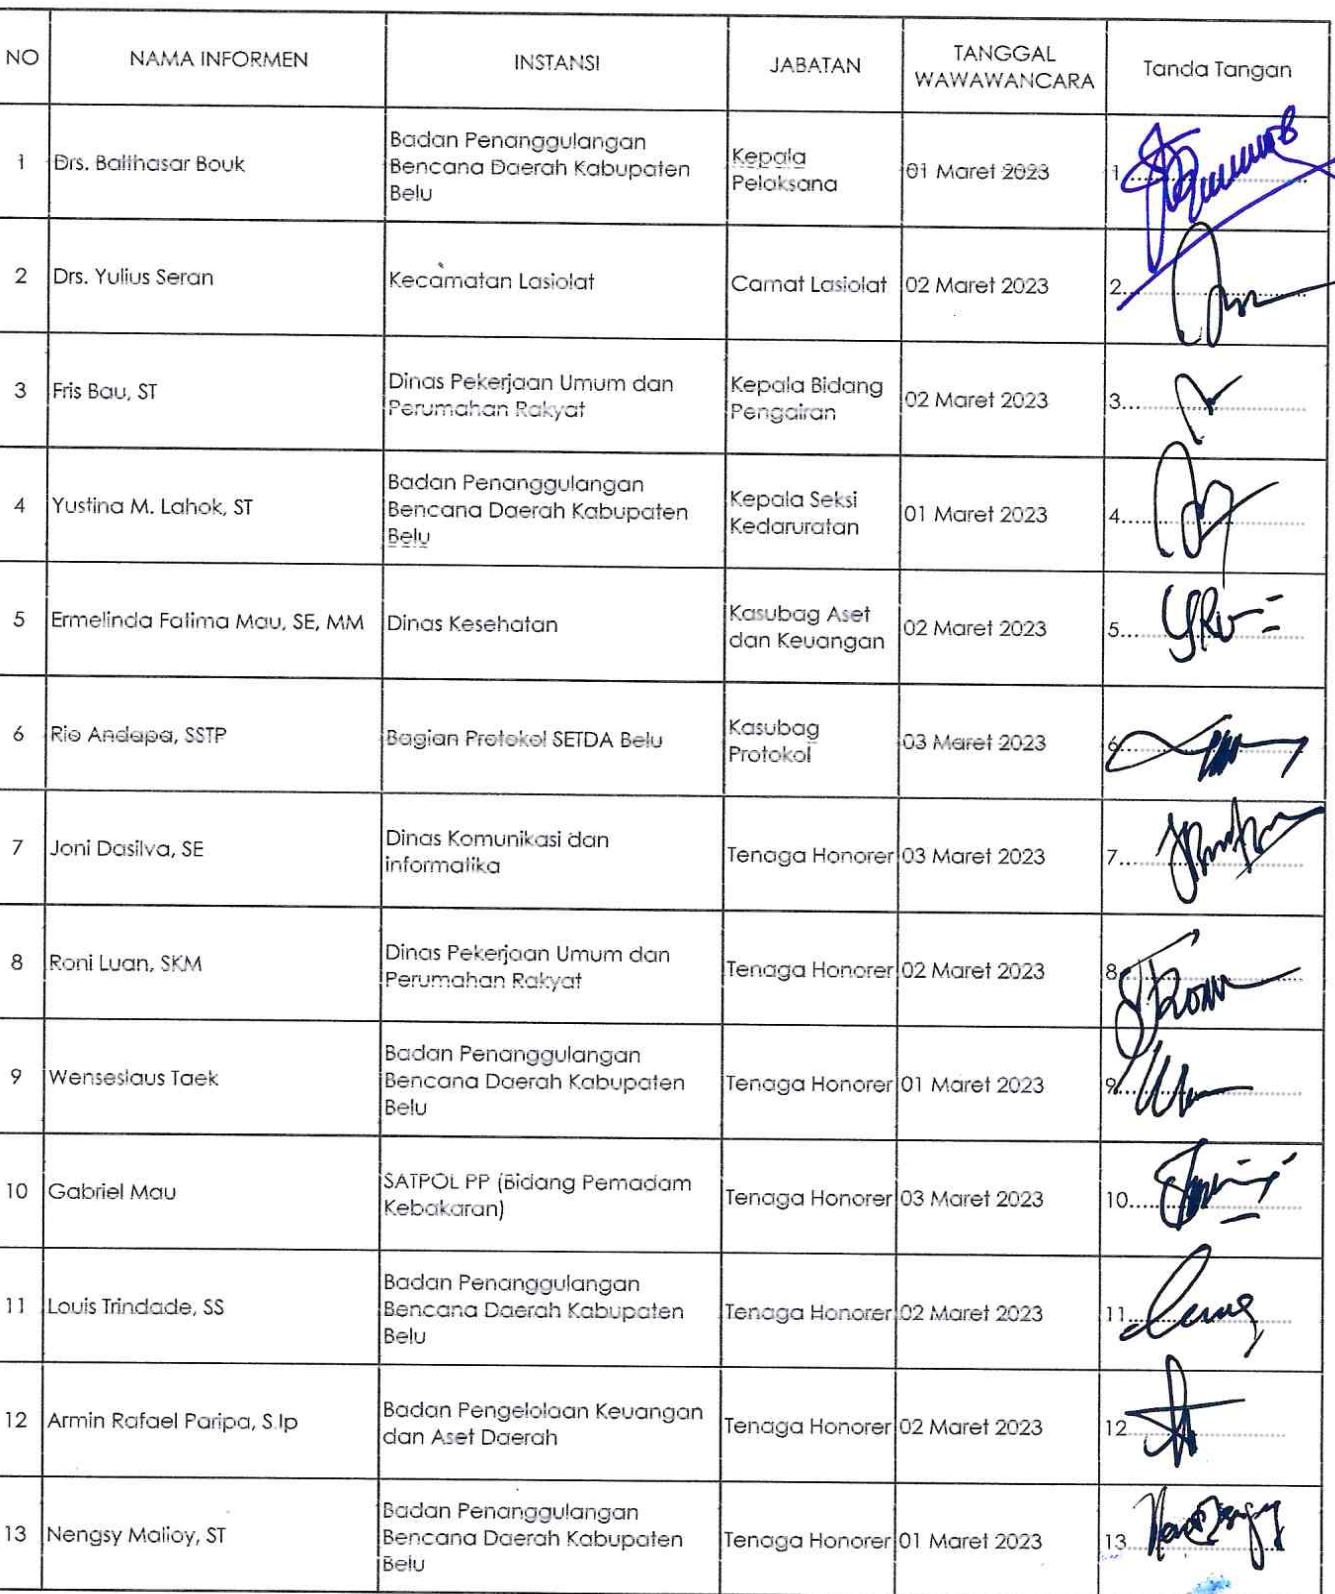 NO
NAMA INFORMEN
INSTANSI
JABATAN
TANGGAL
WAWAWANCARA
Tanda Tangan
1
Drs. Balthasar Bouk
Badan Penanggulangan
Bencana Daerah Kabupaten
Belu
Kepala
Pelaksana
01 Maret 2023
1
2
Drs. Yulius Seran
Kecamatan Lasiolat
Camat Lasiolat
02 Maret 2023
2
3
Fris Bau, ST
Dinas Pekerjaan Umum dan
Perumahan Rakyat
Kepala Bidang
Pengairan
02 Maret 2023
3
4
Yustina M. Lahok, ST
Badan Penanggulangan
Bencana Daerah Kabupaten
Belu
Kepala Seksi
Kedaruratan
01 Maret 2023
4
5
Ermelinda Fatima Mau, SE, MM
Dinas Kesehatan
Kasubag Aset
dan Keuangan
02 Maret 2023
5
6
Rio Andapa, SSTP
Bagian Protokol SETDA Belu
Kasubag
Protokol
03 Maret 2023
6
7
Joni Dasilva, SE
Dinas Komunikasi dan
informatika
Tenaga Honorer
03 Maret 2023
7
8
Roni Luan, SKM
Dinas Pekerjaan Umum dan
Perumahan Rakyat
Tenaga Honorer
02 Maret 2023
8
9
Wenseslaus Taek
Badan Penanggulangan
Bencana Daerah Kabupaten
Belu
Tenaga Honorer
01 Maret 2023
9
10
Gabriel Mau
SATPOL PP (Bidang Pemadam
Kebakaran)
Tenaga Honorer
03 Maret 2023
10
11
Louis Trindade, SS
Badan Penanggulangan
Bencana Daerah Kabupaten
Belu
Tenaga Honorer
02 Maret 2023
11
12
Armin Rafael Paripa, S.Ip
Badan Pengelolaan Keuangan
dan Aset Daerah
Tenaga Honorer
02 Maret 2023
12
13
Nengsy Malioy, ST
Badan Penanggulangan
Bencana Daerah Kabupaten
Belu
Tenaga Honorer
01 Maret 2023
13